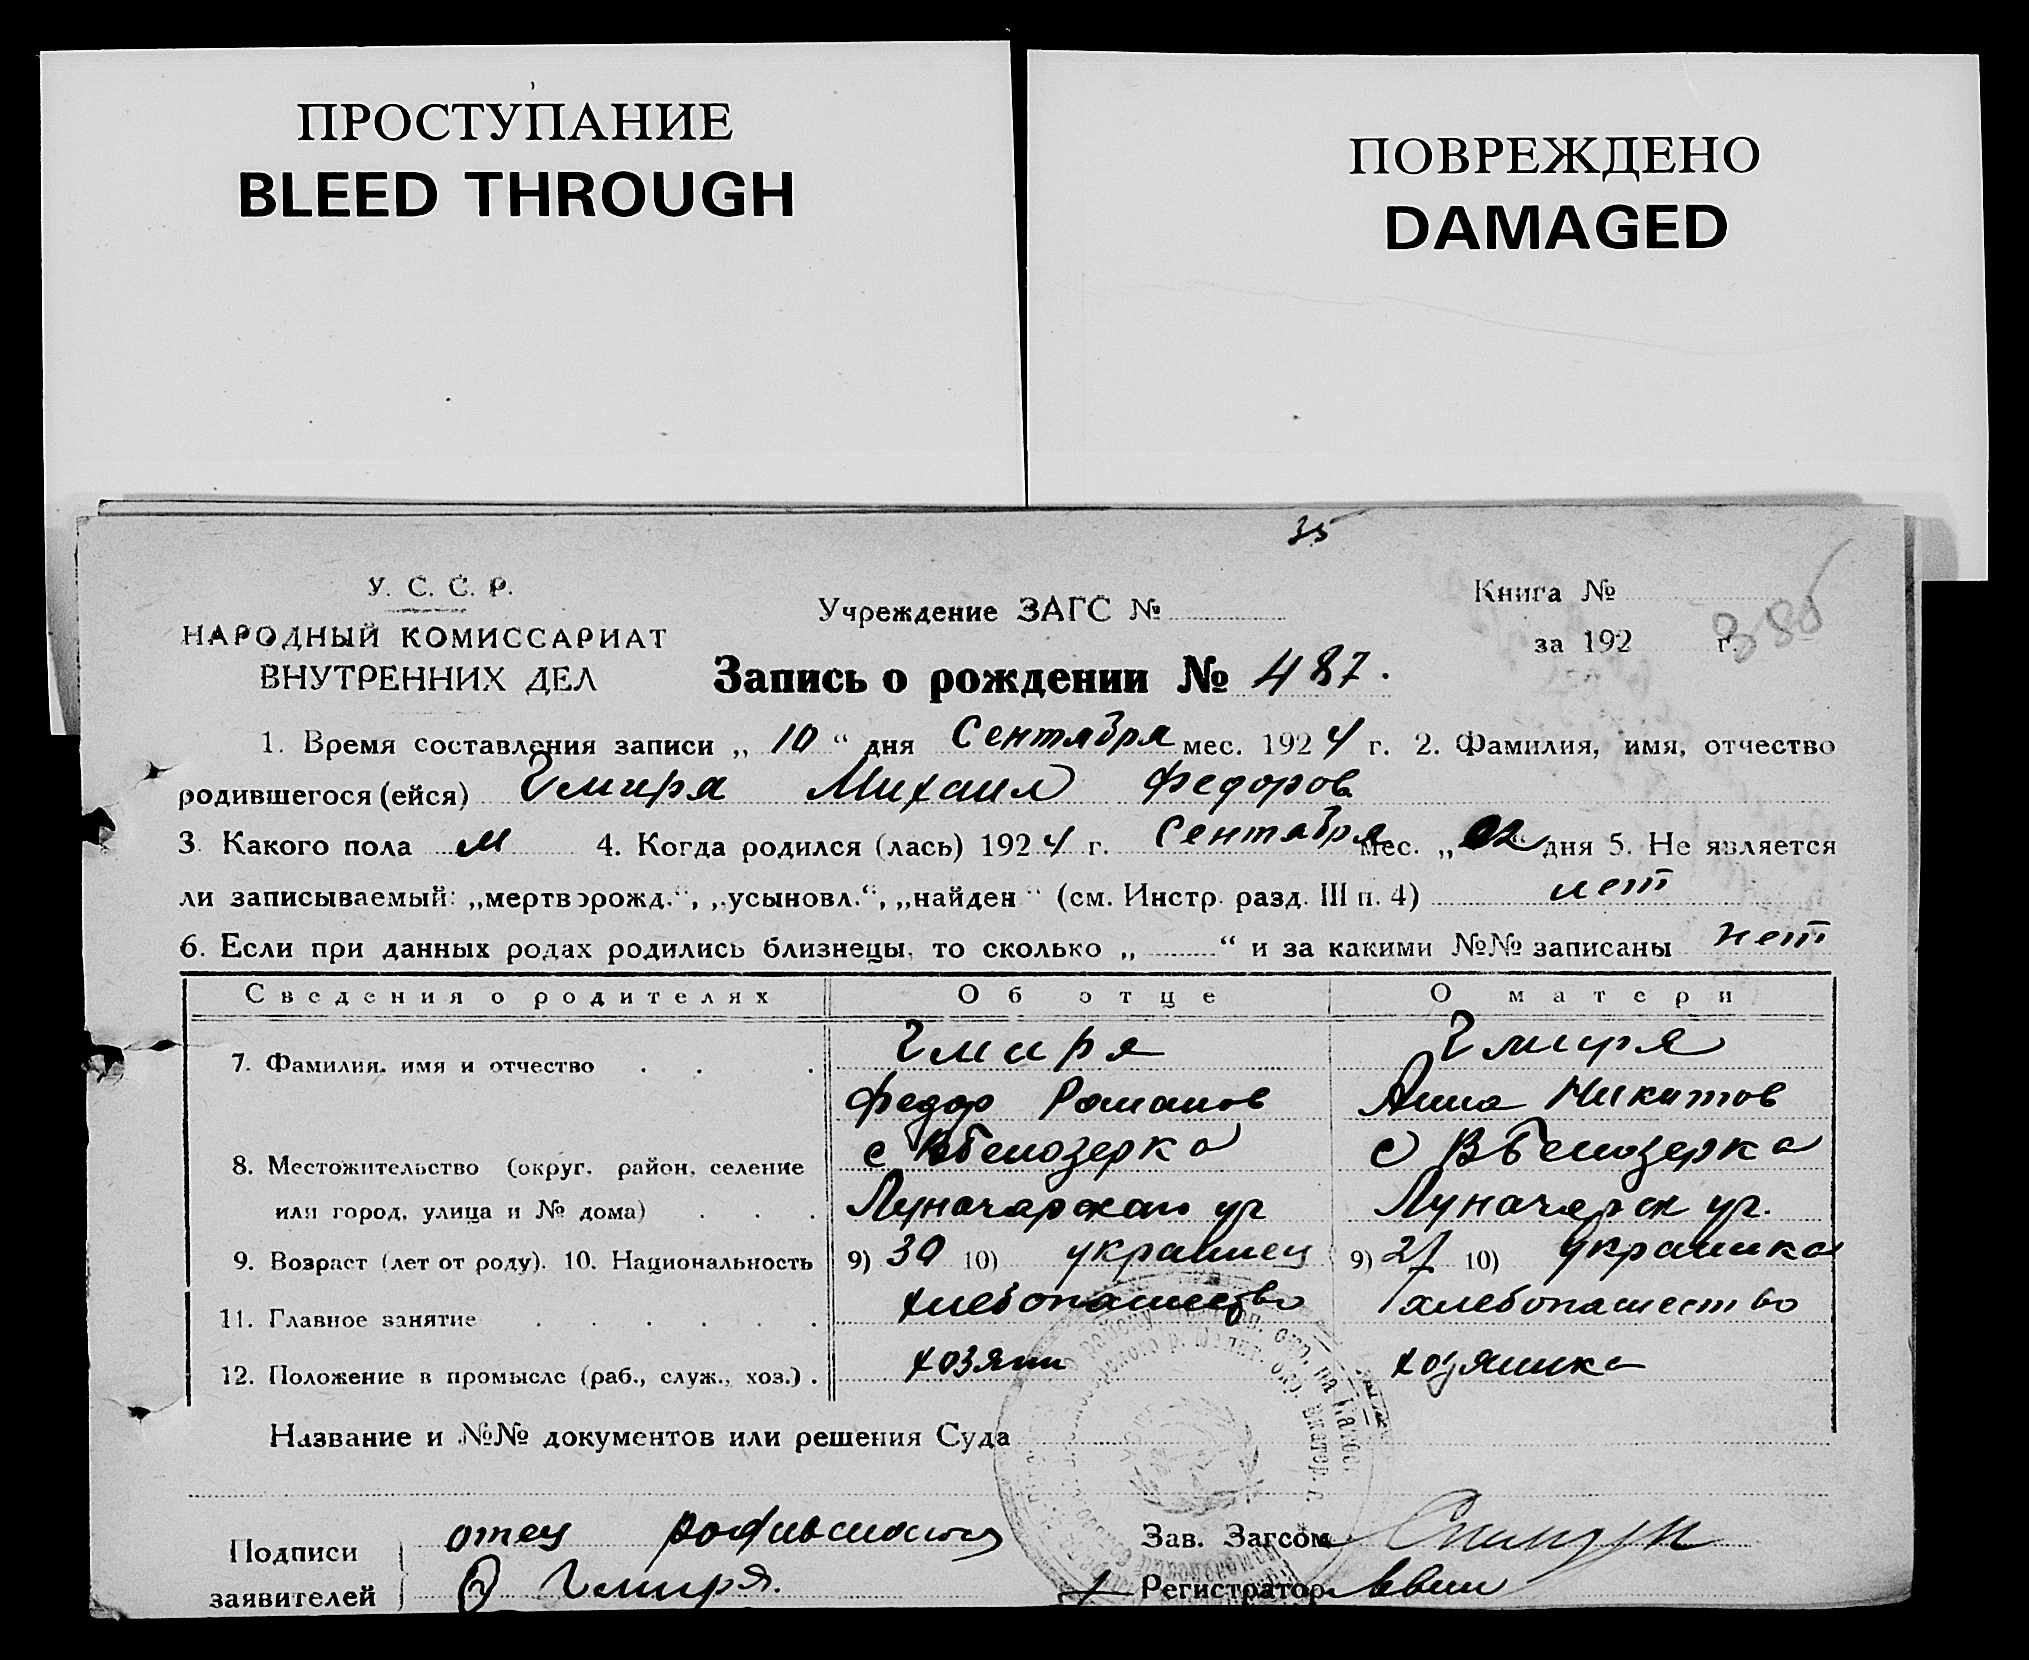 ПРОСТУПАНИЕ
BLEED THROUGH
ПОВРЕЖДЕНО
DAMAGED
35
У. С. С. Р.
НАРОДНЫЙ КОМИССАРИАТ
ВНУТРЕННИХ ДЕЛ
Учреждение ЗАГС №
Книга №
за 192 г.
385
Запись о рождении № 487.
1. Время составления записи „ 10 “ дня Сентября мес. 1924 г. 2. Фамилия, имя, отчество
родившегося (ейся) Чмиря Михаил Федоров
3. Какого пола м 4. Когда родился (лась) 1924 г. Сентября мес. „ 02 “ дня 5. Не является
ли записываемый: „мертворожд.“, „усыновл.“, „найден“ (см. Инстр. разд. III п. 4) нет
6. Если при данных родах родились близнецы, то сколько „ “ и за какими №№ записаны нет
Сведения о родителях Об отце О матери
7. Фамилия, имя и отчество Чмиря Чмиря
Федор Романов Анна Никитов
8. Местожительство (округ, район, селение с ВБелозерка с ВБелозерка
или город, улица и № дома) Луначарская ул Луначарск ул.
9. Возраст (лет от роду). 10. Национальность 9) 30 10) украинец 9) 27 10) украинка
11. Главное занятие хлебопашество хлебопашество
12. Положение в промысле (раб., служ., хоз.) хозяин хозяйка
Название и №№ документов или решения Суда
Подписи
заявителей
отец
Чмиря.
Зав. Загсом
Регистратор